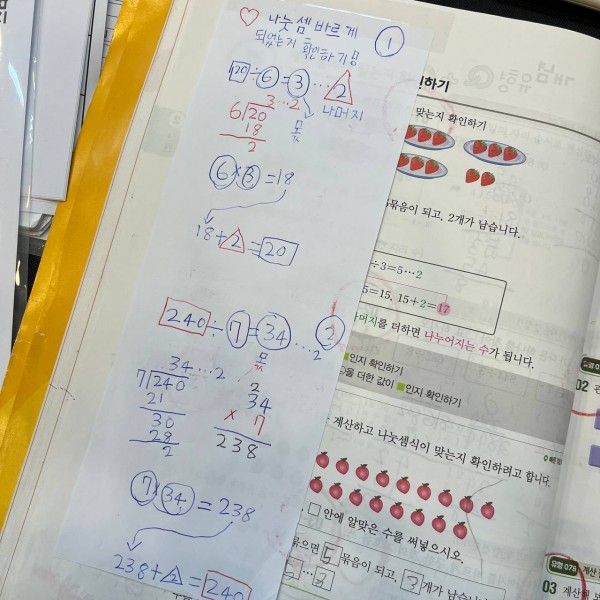 ♡ 나눗셈 바르게
되었는지 확인하기
①
20÷6=3…2
나머지
몫
3…2
6)20
18
2
6×3=18
18+2=20
240÷7=34…2
몫
34…2
7)240
21
30
28
2
2
34
× 7
238
7×34=238
238+2=240
개념 유형
인하기
맞는지 확인하기
묶음이 되고, 2개가 남습니다.
÷3=5…2
5=15, 15+2=17
머지를 더하면 나누어지는 수가 됩니다.
인지 확인하기
을 더한 값이 인지 확인하기
계산하고 나눗셈식이 맞는지 확인하려고 합니다.
□ 안에 알맞은 수를 써넣으시오.
묶으면 5 묶음이 되고, 개가 남습니다.
02
유형 078 계산
03 계산해 보